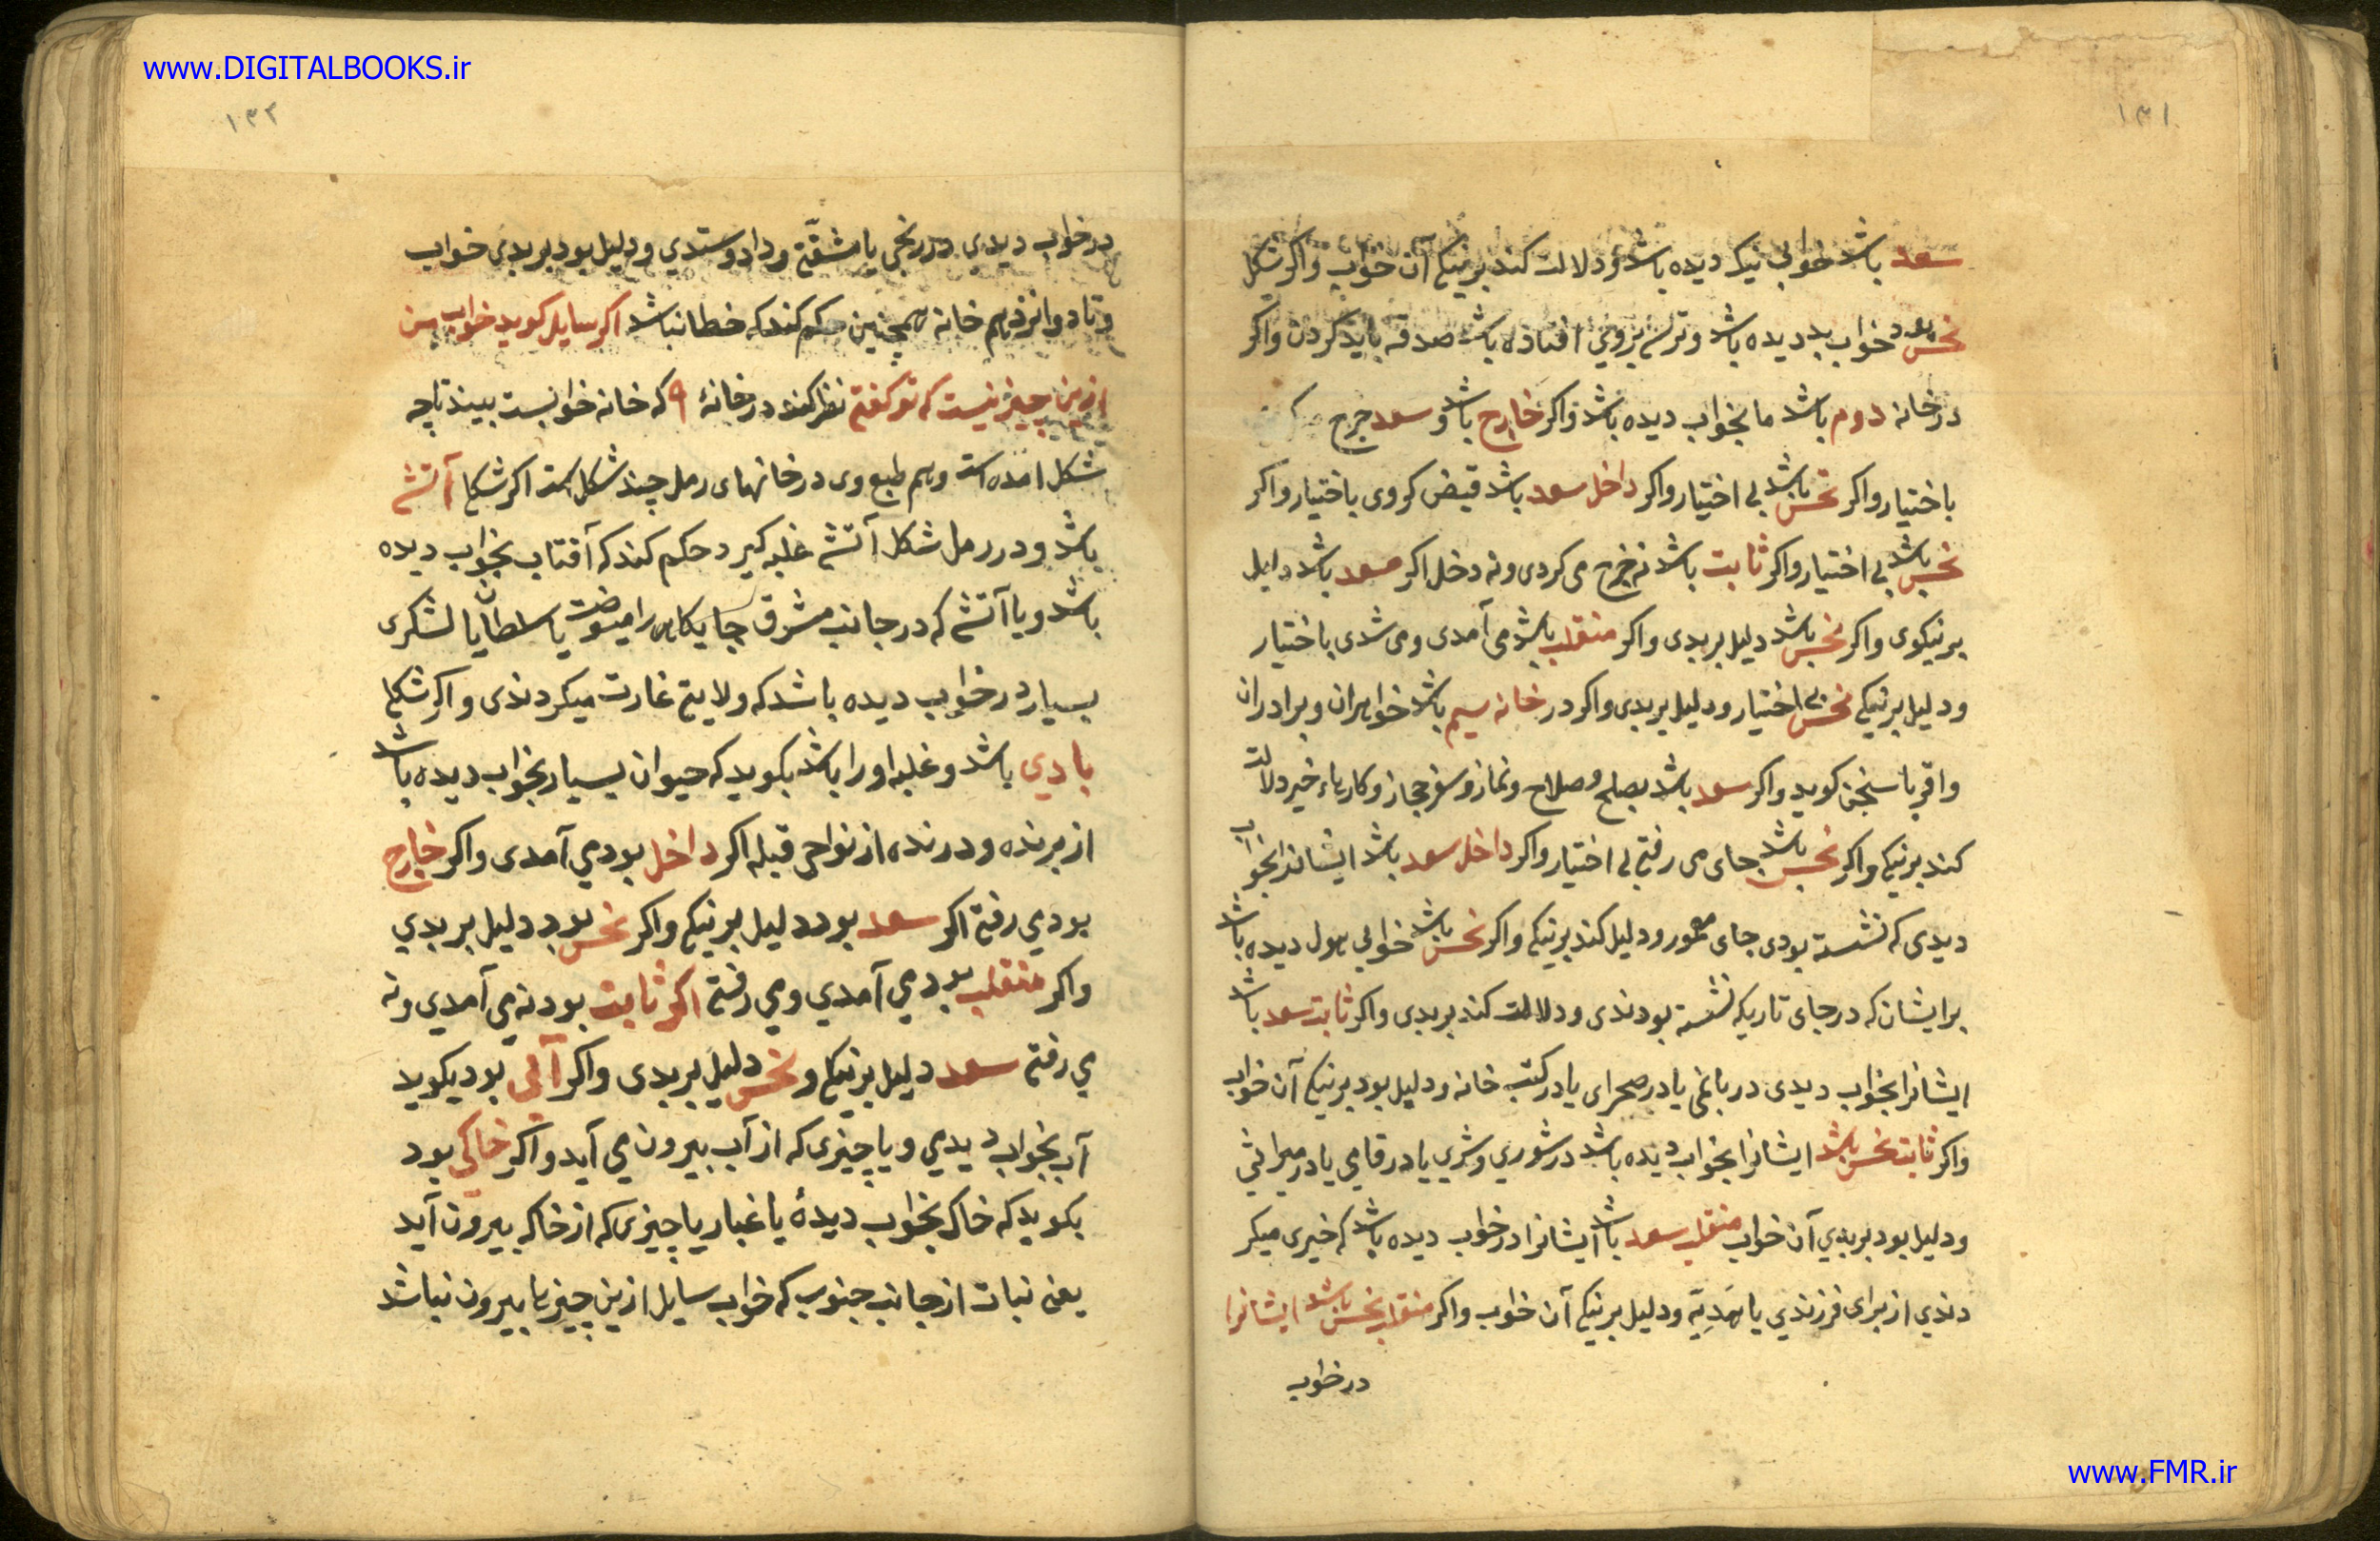 www.DIGITALBOOKS.ir
۱۳۱
سعد باشد خوابی نیک دیده باشد و دلالت کند بر نیکی آن خواب و اکر شکل
نحس بود خواب بد دیده باشد و ترس بر وی افتاده باشد صدقه باید کردن و اکر
در خانه دوم باشد ما بخواب دیده باشد و اکر خارج باشد و سعد خرج
باختیار و اکر نحس باشد بی اختیار و اکر داخل سعد باشد قبض کروی باختیار و اکر
نحس باشد بی اختیار و اکر ثابت باشد نه خرج می کردی و نه دخل اکر سعد باشد دلیل
بر نیکوی و اکر نحس باشد دلیل بر بدی و اکر منقلب باشد می آمدی و می شدی باختیار
و دلیل بر نیکی نحس بی اختیار و دلیل بر بدی و اکر در خانه سیم باشد خواهران و برادران
و اقربا سخن کوید و اکر سعد باشد بصلح و صلاح و نماز و سفر حجاز و کارهاء خیر دلالت
کند بر نیکی و اکر نحس باشد جای می رفتی بی اختیار و اکر داخل سعد باشد ایشانرا بخواب
دیدی که نشسته بودی جای معمور و دلیل کند بر نیکی و اکر نحس باشد خوابی هول دیده باشد
بر ایشان که در جای تاریک نشسته بودندی و دلالت کند بر بدی و اکر ثابت سعد باشد
ایشانرا بخواب دیدی در باغی یا در صحرای یا در کتب خانه و دلیل بود بر نیکی آن خواب
و اکر ثابت نحس باشد ایشانرا بخواب دیده باشد در شوری و شری یا در قامی یا در میراثی
و دلیل بود بر بدی آن خواب منقلب سعد باشد ایشانرا در خواب دیده باشد که خیری میکر
دندی از برای فرزندی یا هَدِیَّه و دلیل بر نیکی آن خواب و اکر منقلب نحس باشد ایشانرا
در خواب
۱۳۲
در خواب دیدی در رنجی یا مشقّتی و داد و ستدی و دلیل بود بر بدی خواب
و تا دوانزدهم خانه همچنین حکم کند که خطا نباشد اکر سایل کوید خواب من
ازین چیز نیست که تو کفتی نظر کند در خانهٔ ۹ که خانه خوابست ببیند تا چه
شکل آمده است و هم طبع وی در خانهای رمل چند شکل است اکر شکل آتشی
باشد و در رمل شکل آتشی غلبه کیرد حکم کند که آفتاب بخواب دیده
باشد و یا آتشی که در جانب مشرق جایکاه را میسوخت یا سلطان یا لشکری
بسیار در خواب دیده باشد که ولایتی غارت میکردندی و اکر شکل
بادی باشد و غلبه او را باشد بکوید که حیوان بسیار بخواب دیده باشد
از پرنده و درنده از نواحی قبله اکر داخل بود می آمدی و اکر خارج
بود می رفتی اکر سعد بود دلیل بر نیکی و اکر نحس بود دلیل بر بدی
و اکر منقلب بود می آمدی و می رفتی اکر ثابت بود نه می آمدی و نه
می رفتی سعد دلیل بر نیکی و نحس دلیل بر بدی و اکر آبی بود بکوید
آب بخواب دیدی و یا چیزی که از آب بیرون می آید و اکر خاکی بود
بکوید که خاک بخواب دیدهٔ یا غبار یا چیزی که از خاک بیرون آید
یعنی نبات از جانب جنوب که خواب سایل ازین چیزها بیرون نباشد
www.FMR.ir